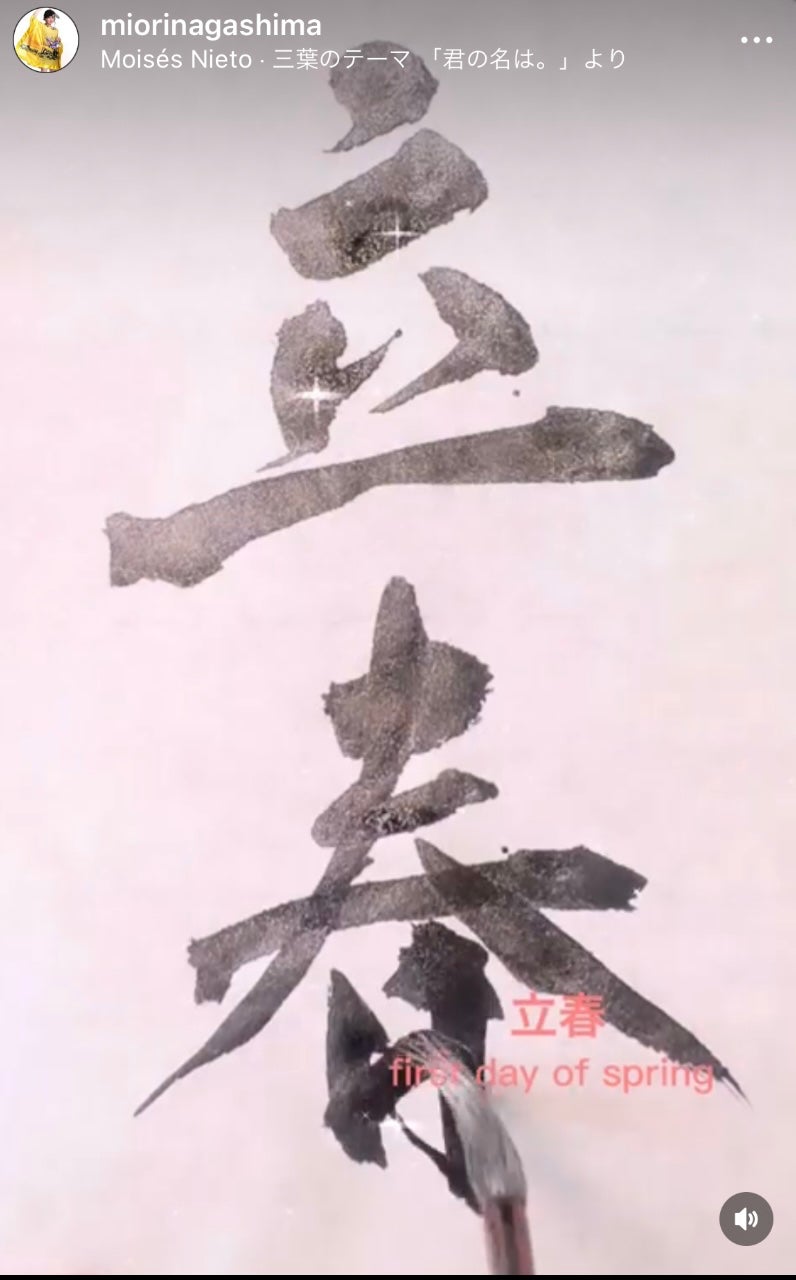 miorinagashima
Moisés Nieto · 三葉のテーマ 「君の名は。」より
立春
立春
first day of spring